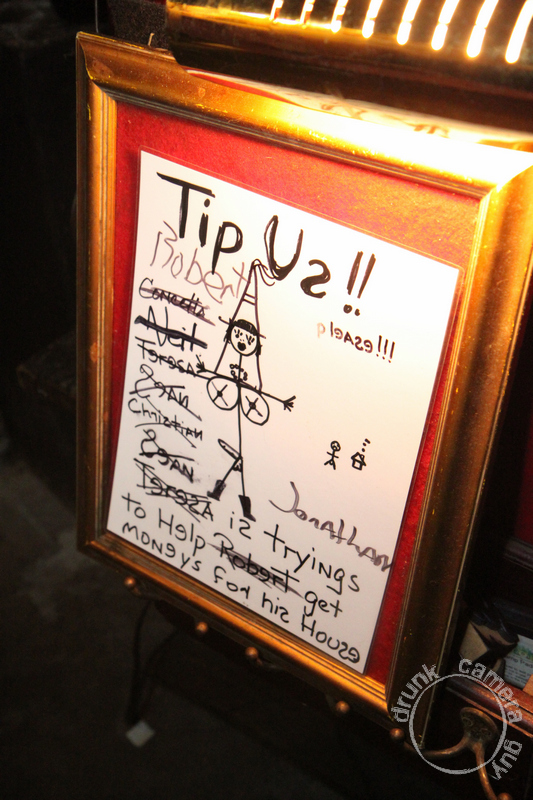 Tip Us!!
Robert
!!!esaelq
Concetta
Neil
Teresa
Sean
Christian
Sean
Teresa iz tryings
Jonathan
to Help Robert get
moneys for his House
drunk camera guy